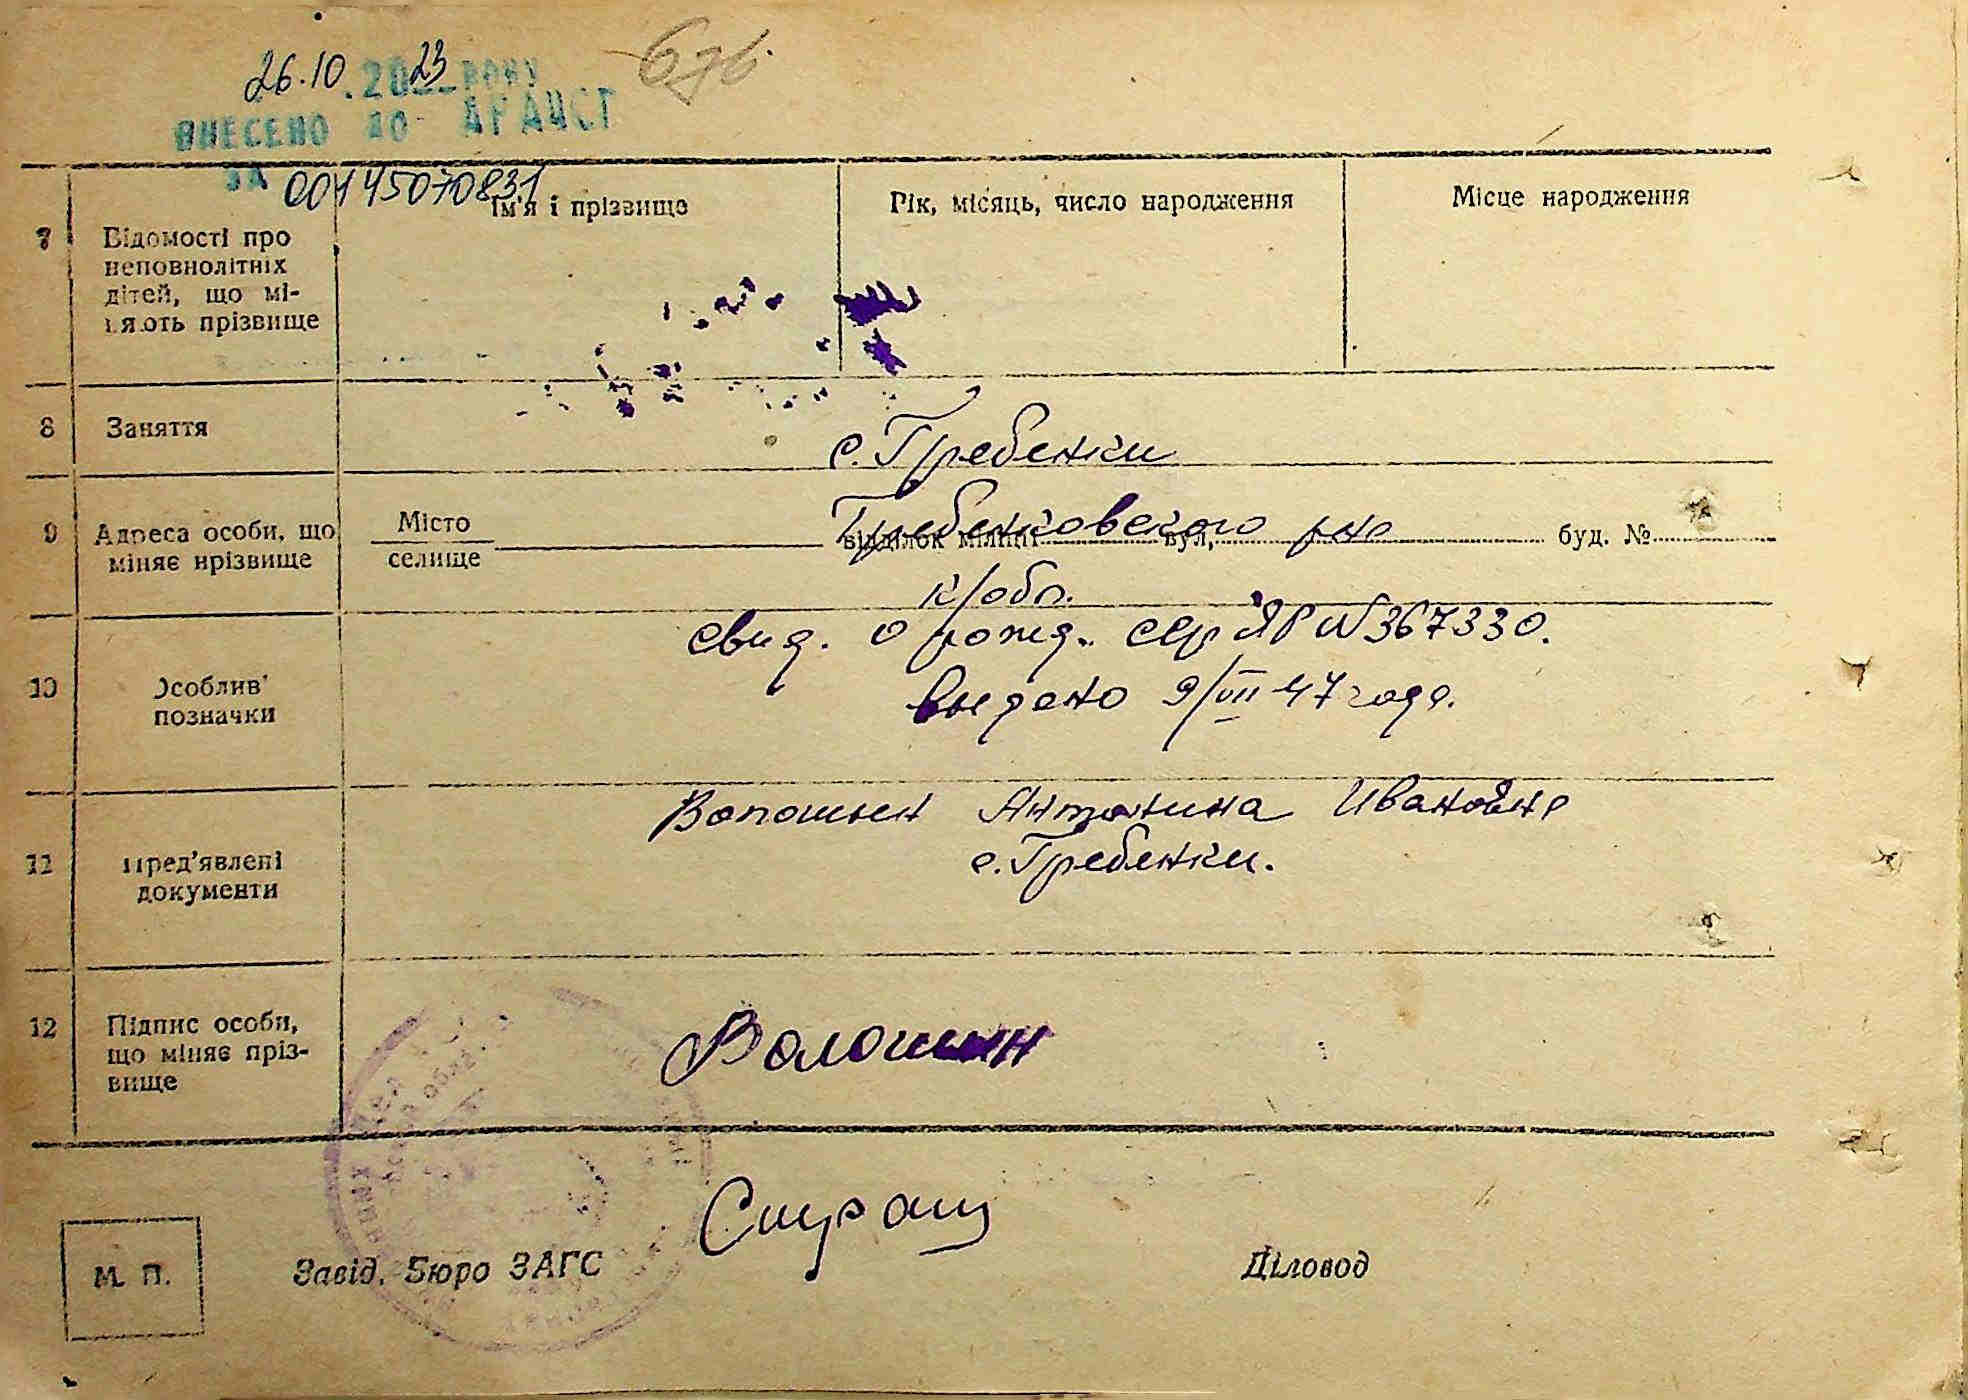 26.10.2023 року 676
ВНЕСЕНО ДО ДРАЦСГ
ЗА 00145070831
Ім'я і прізвище Рік, місяць, число народження Місце народження
7 Відомості про
неповнолітніх
дітей, що мі-
няють прізвище
8 Заняття
с. Гребенки
9 Адреса особи, що
міняє прізвище
Місто
селище
Гребенковского р-на
відділок міліції вул, буд. №
к/обл.
свид. о рожд. сер ЯР N 367330.
выдано 9/VII 47 года.
10 Особливі
позначки
Волошин Антонина Ивановна
с. Гребенки.
11 Пред'явлені
документи
12 Підпис особи,
що міняє пріз-
вище
Волошин
М. П.
Завід. Бюро ЗАГС
Діловод